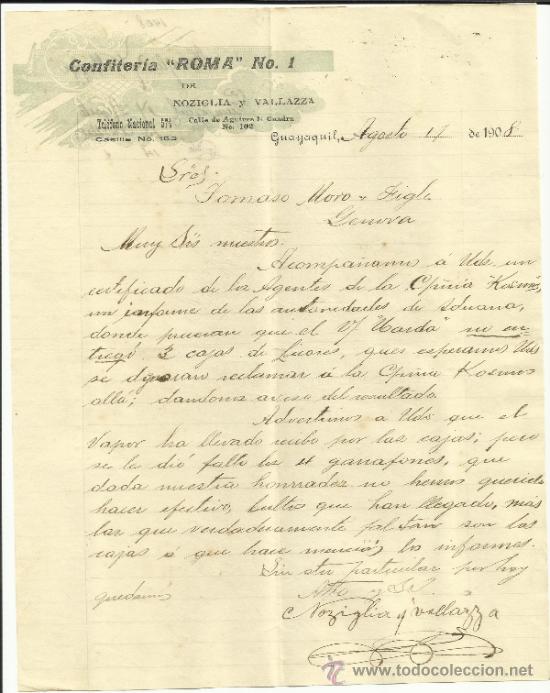 Confitería "ROMA" No. 1
DE
NOZIGLIA y VALLAZZA
Teléfono Nacional 571
Casilla No. 163
Calle de Aguirre
No. 102
Guayaquil, Agosto 17 de 1908
Sres.
Tomaso Moro y Figli
Genova
Muy Sres nuestros.
Acompañamos á Uds. un
certificado de los Agentes de la Cpñia "Kosmos,
un informe de las autoridades de Aduana,
donde prueban que el V/ "Uarda" no en-
tregó 3 cajas de licores, que esperamos Uds
se dignaran reclamar á la Cpñia Kosmos
allá; dandonos aviso del resultado.
Advertimos a Uds que el
Vapor ha llevado recibo por las cajas; pero
se le dió falto los 4 garrafones, que
dada nuestra honradez no hemos querido
hacer efectivo, bultos que han llegado, más
las que verdaderamente faltan son las
cajas á que hace mención los informes.
Sin otro particular por hoy
quedamos
Atto y SS.
Noziglia y Vallazza
todocoleccion
www.todocoleccion.net